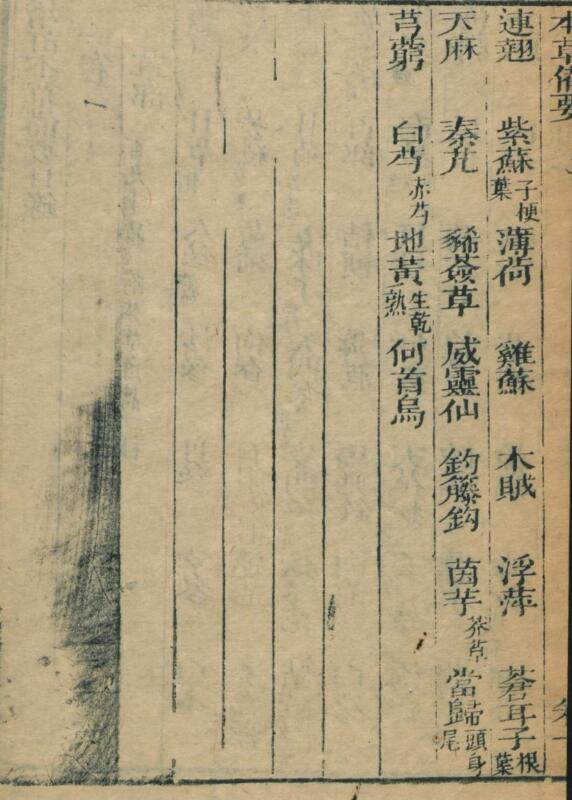 本草備要
連翹 紫蘇子梗葉 薄荷 雞蘇 木賊 浮萍 蒼耳子根葉
天麻 秦艽 豨薟草 威靈仙 鈎籐鈎 茵芋 當歸頭身尾
芎藭 白芍赤芍 地黃生乾熟 何首烏